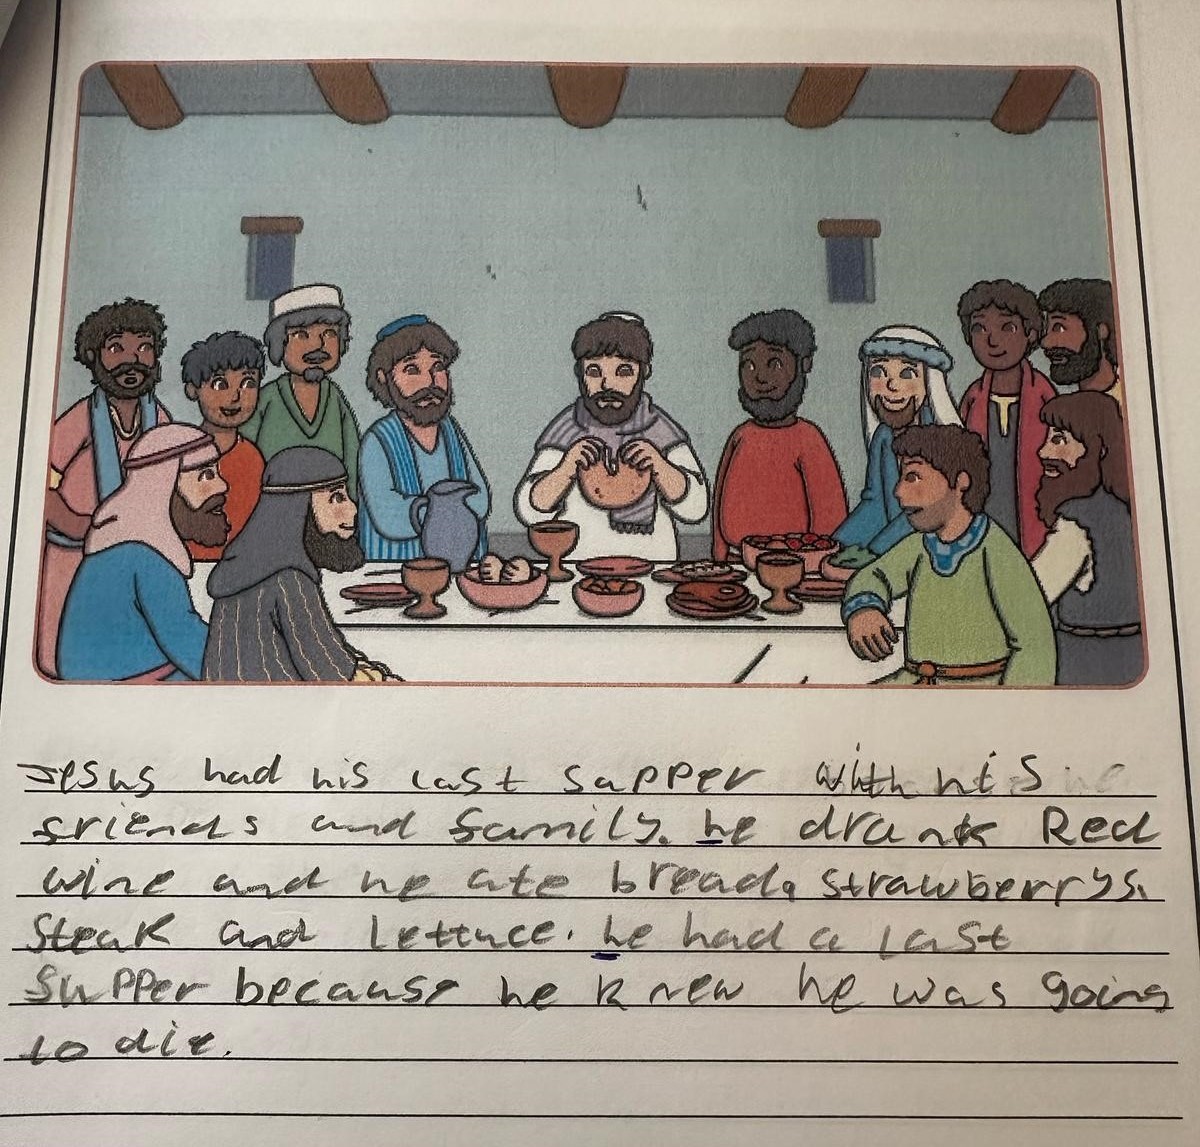 Jesus had his last supper with his
friends and family. he drank Red
wine and he ate bread, strawberrys,
Steak and Lettuce. he had a last
supper because he knew he was going
to die.